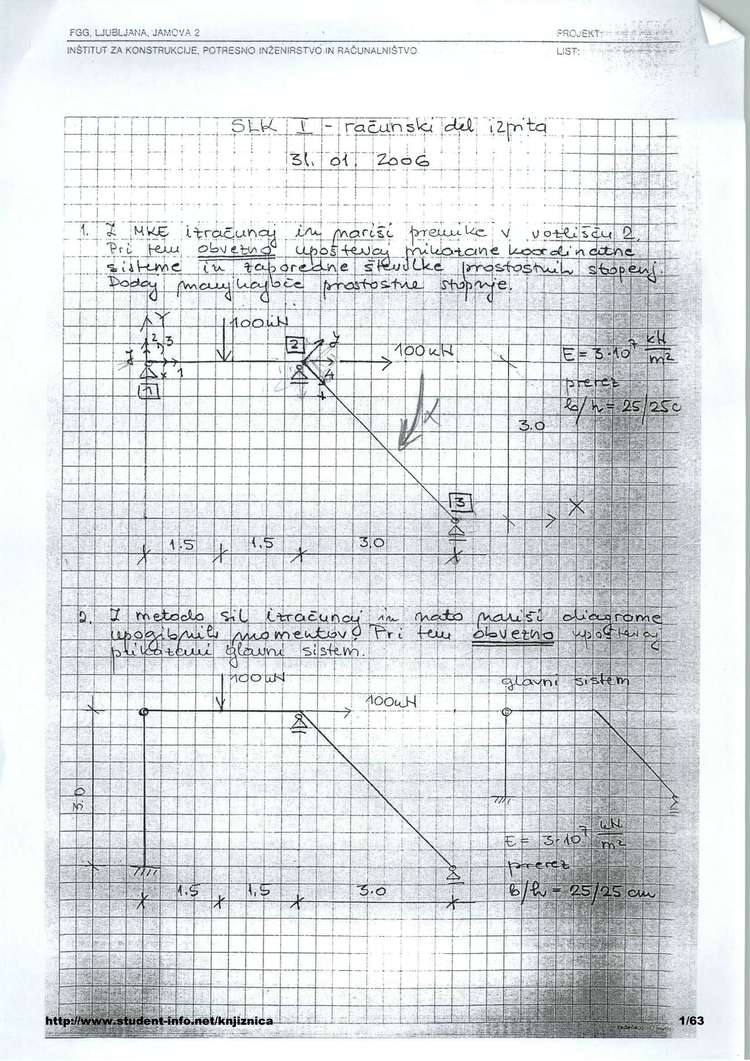 FGG, LJUBLJANA, JAMOVA 2
PROJEKT:
INŠTITUT ZA KONSTRUKCIJE, POTRESNO INŽENIRSTVO IN RAČUNALNIŠTVO
LIST:
SLK I - računski del izpita
31. 01. 2006
1. Z MKE izračunaj in nariši premike v vozlišču 2.
Pri tem obvezno upoštevaj prikazane koordinatne
sisteme in zaporedne številke prostostnih stopenj.
Dodaj manjkajoče prostostne stopnje.
Y
100 kN
2 3
y
2
y
100 kN
E = 3·10⁷ kN/m²
x 1
4
x
1
prerez
b/h = 25/25c
3.0
x
3
X
1.5 1.5 3.0
2. Z metodo sil izračunaj in nato nariši diagrame
upogibnih momentov! Pri tem obvezno upoštevaj
prikazani glavni sistem.
100 kN
glavni sistem
100 kN
3.0
E = 3·10⁷ kN/m²
prerez
b/h = 25/25 cm
1.5 1.5 3.0
http://www.student-info.net/knjiznica
1/63